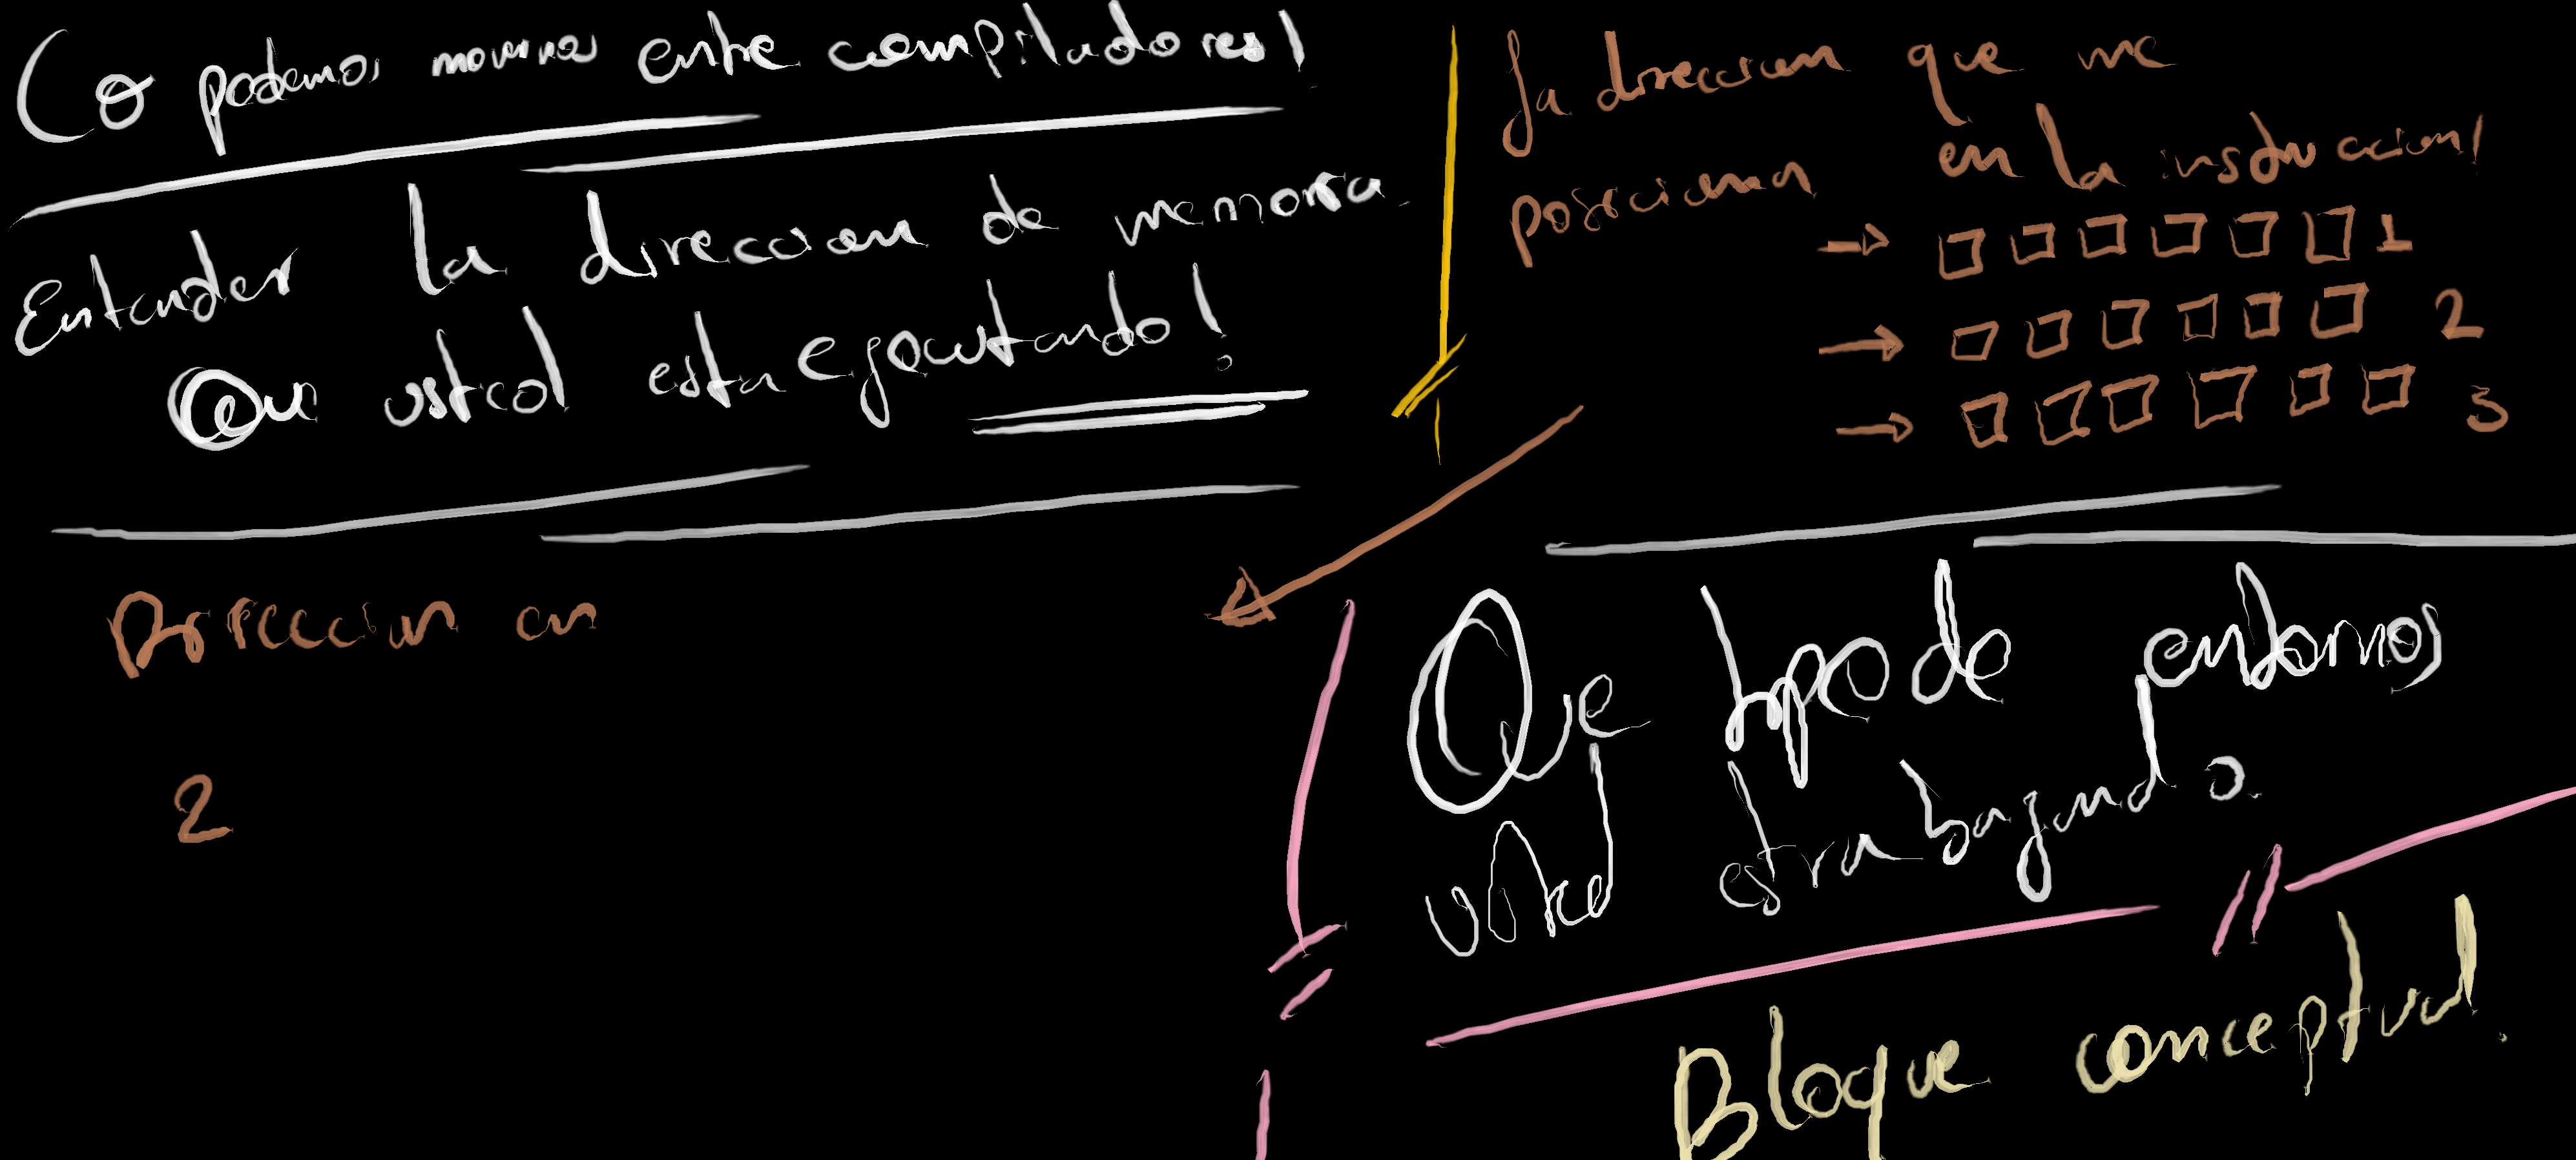 podemos movernos entre compiladores!
Entender la direccion de memoria
Que usted esta ejecutando!
la direccion que me
posiciona en la instruccion!
1
2
3
Direccion en
2
Que tipo de entornos
usted estrabajando.
Bloque conceptual.